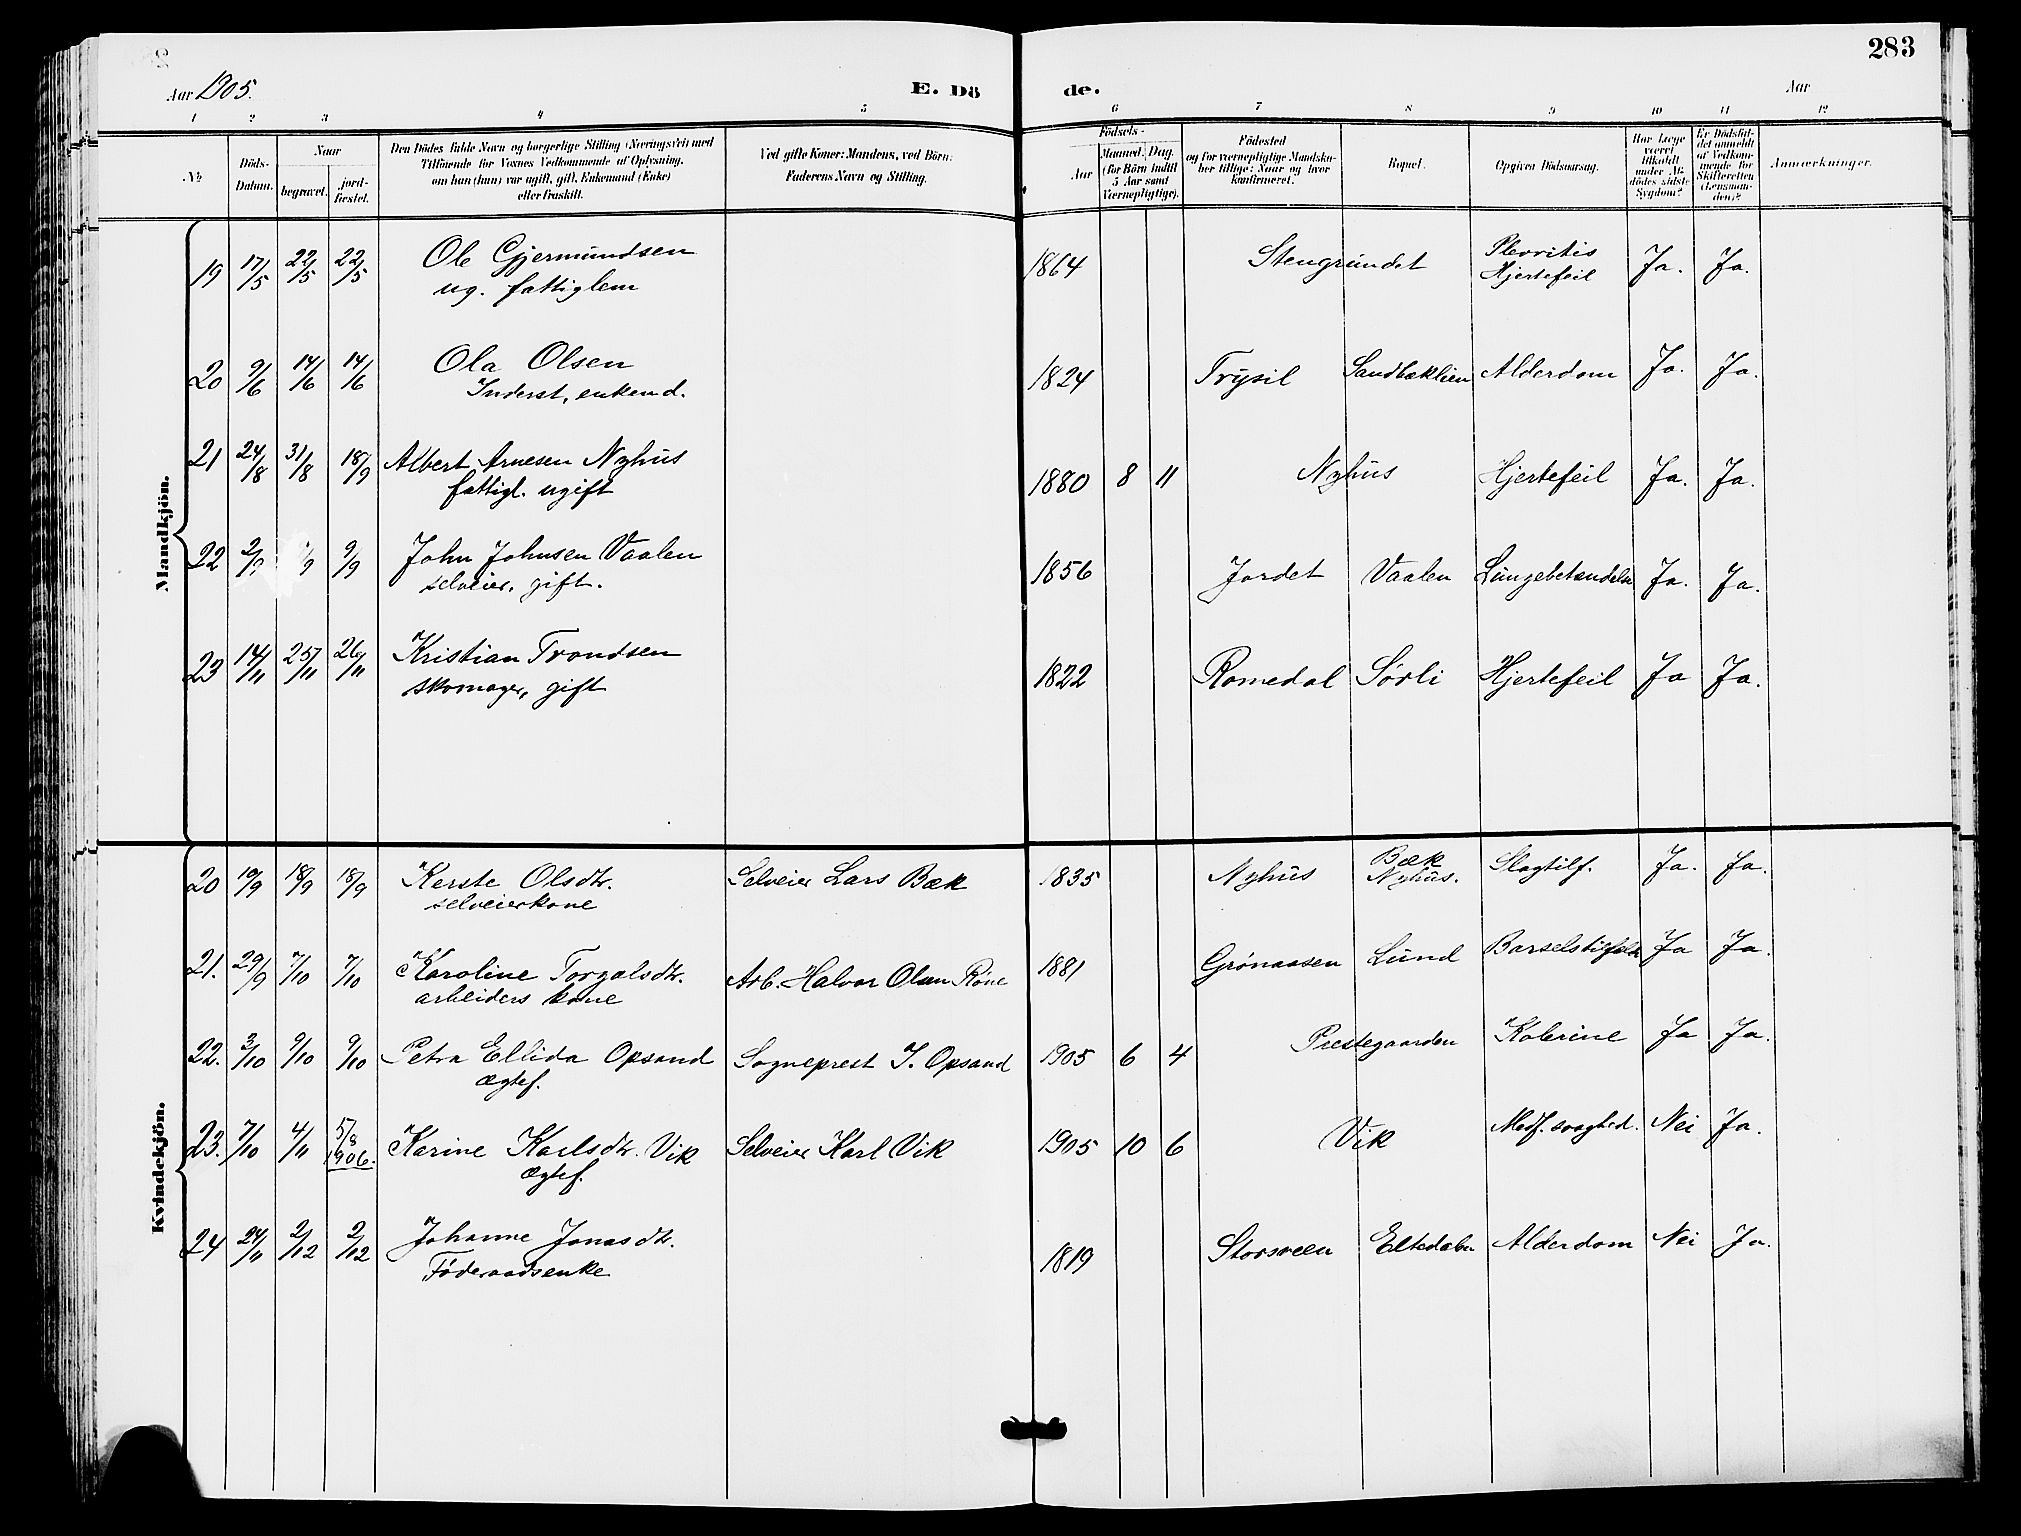 283
Aar 1905.
E. Dö de.
Aar
1 2 3 4 5 6 7 8 9 10 11 12
No
Döds-
Datum.
Naar
begravet.
jord-
fæstet.
Den Dödes fulde Navn og borgerlige Stilling (Næringsvei) med
Tilföiende for Voxnes Vedkommende af Oplysning,
om han (hun) var ugift, gift, Enkemand (Enke)
eller fraskilt.
Ved gifte Koner: Mandens, ved Börn:
Faderens Navn og Stilling.
Födsels-
Aar
Maaned. Dag.
(for Börn indtil
5 Aar samt
Værnepligtige).
Födested
og for værnepligtige Mandska-
ber tillige: Naar og hvor
konfirmeret.
Bopæl.
Opgiven Dödsaarsag.
Har Læge
været
tilkaldt
under Af-
dödes sidste
Sygdom?
Er Dödsfal-
det anmeldt
af Vedkom-
mende for
Skifteretten
(Lensman-
den)?
Anmærkninger.
Mandkjön.
19 17/5 22/5 22/5 Ole Gjermundsen 1864 Stengrundet Plevritis Ja. Ja.
ug. fattiglem Hjertefeil
20 9/6 14/6 14/6 Ola Olsen 1824 Trysil Sandbæklien Alderdom Ja. Ja.
Inderst, enkemd.
21 24/8 31/8 18/9 Albert Arnesen Nyhus 1880 8 11 Nyhus Hjertefeil Ja. Ja.
fattigl. ugift
22 2/9 /9 9/9 John Johnsen Vaalen 1856 Jordet Vaalen Lungebetændelse Ja. Ja.
selveier, gift.
23 14/11 25/11 26/11 Kristian Trondsen 1822 Romedal Sörli Hjertefeil Ja Ja.
skomager, gift
Kvindekjön.
20 10/9 18/9 18/9 Kerste Olsdtr. Selveier Lars Bæk 1835 Nyhus Bæk Slagtilf. Ja. Ja.
selveierkone Nyhus.
21. 29/9 7/10 7/10 Karoline Torgalsdtr. Arb. Halvor Olsen Röne 1881 Grönaasen Lund Ja Ja.
arbeiders kone
22. 3/10 9/10 9/10 Petra Ellida Opsand Sogneprest I. Opsand 1905 6 4 Prestegaarden Kolerine Ja Ja.
ægtef.
23. 7/10 4/11 5/8 1906. Karine Karlsdtr. Vik Selveier Karl Vik 1905 10 6 Vik Medf. svaghed. Nei Ja.
ægtef.
24 24/11 2/12 2/12 Johanne Jonasdtr. 1819 Storsveen Eltedalen Alderdom Nei Ja.
Föderaadsenke